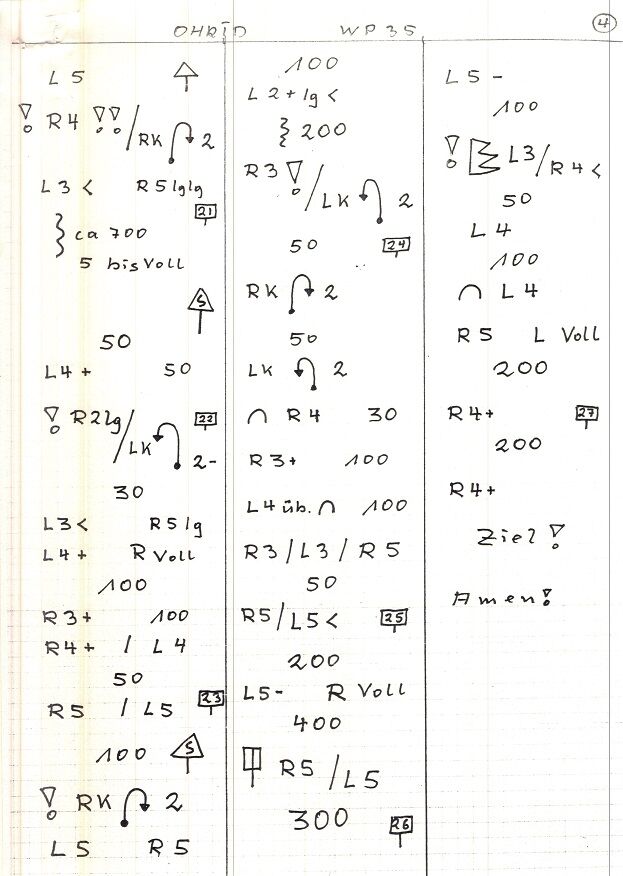 OHRID WP 35 4
L 5
! R4 !! / RK 2
L3 < R5 lglg
21
ca 700
5 bis Voll
S
50
L4+ 50
! R2lg / LK 2-
22
30
L3 < R5 lg
L4+ R Voll
100
R3+ 100
R4+ / L4
50
R5 / L5
23
100 S
! RK 2
L5 R5
100
L2+ lg <
200
R3 ! / LK 2
50 24
RK 2
50
LK 2
R4 30
R3+ 100
L4 üb. 100
R3 / L3 / R5
50
R5 / L5 < 25
200
L5- R Voll
400
R5 / L5
300 26
L5-
100
! L3 / R4 <
50
L4
100
L4
R5 L Voll
200
R4+ 27
200
R4+
Ziel !
Amen!